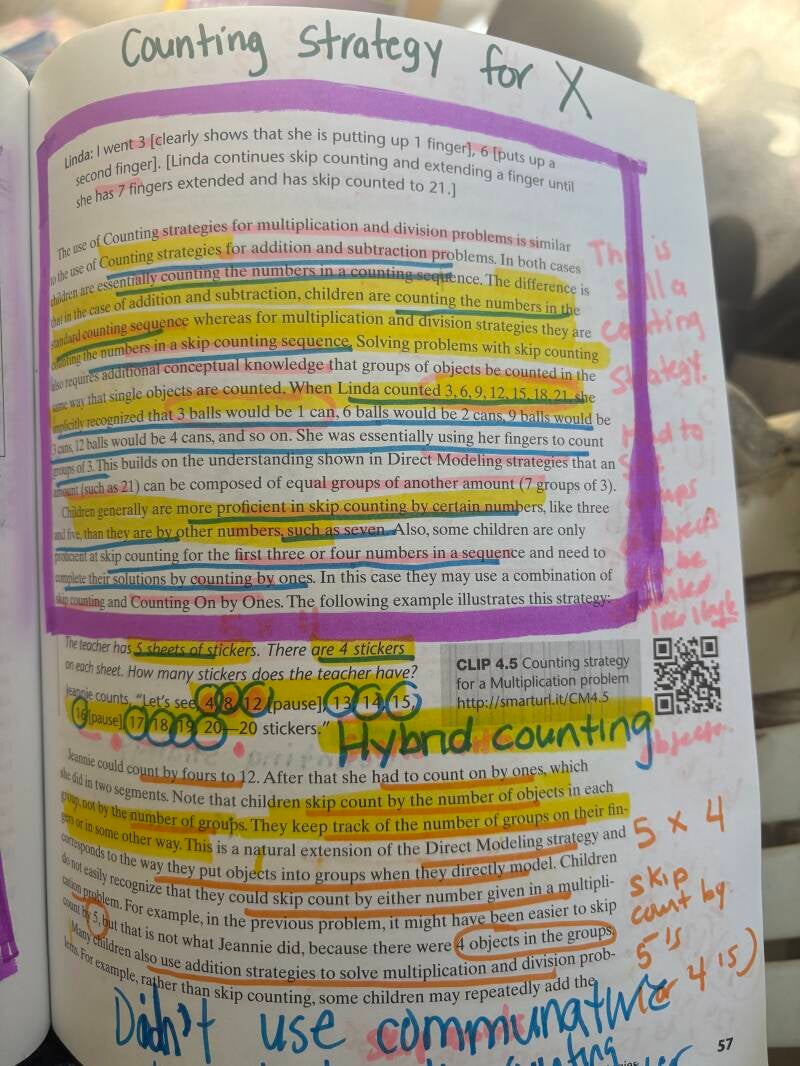 Counting Strategy for X
Linda: I went 3 [clearly shows that she is putting up 1 finger], 6 [puts up a
second finger]. [Linda continues skip counting and extending a finger until
she has 7 fingers extended and has skip counted to 21.]
The use of Counting strategies for multiplication and division problems is similar
to the use of Counting strategies for addition and subtraction problems. In both cases
children are essentially counting the numbers in a counting sequence. The difference is
that in the case of addition and subtraction, children are counting the numbers in the
standard counting sequence whereas for multiplication and division strategies they are
counting the numbers in a skip counting sequence. Solving problems with skip counting
also requires additional conceptual knowledge that groups of objects be counted in the
same way that single objects are counted. When Linda counted 3, 6, 9, 12, 15, 18, 21, she
implicitly recognized that 3 balls would be 1 can, 6 balls would be 2 cans, 9 balls would be
3 cans, 12 balls would be 4 cans, and so on. She was essentially using her fingers to count
groups of 3. This builds on the understanding shown in Direct Modeling strategies that an
amount (such as 21) can be composed of equal groups of another amount (7 groups of 3).
Children generally are more proficient in skip counting by certain numbers, like three
and five, than they are by other numbers, such as seven. Also, some children are only
proficient at skip counting for the first three or four numbers in a sequence and need to
complete their solutions by counting by ones. In this case they may use a combination of
skip counting and Counting On by Ones. The following example illustrates this strategy:
This is
still a
counting
strategy.
had to
groups
objects
be
counted
5 x 4
The teacher has 5 sheets of stickers. There are 4 stickers
on each sheet. How many stickers does the teacher have?
Jeannie counts, "Let's see, 4, 8, 12 [pause], 13, 14, 15,
16 [pause] 17, 18, 19, 20—20 stickers."
CLIP 4.5 Counting strategy
for a Multiplication problem
http://smarturl.it/CM4.5
objects
Hybrid counting
Jeannie could count by fours to 12. After that she had to count on by ones, which
she did in two segments. Note that children skip count by the number of objects in each
group, not by the number of groups. They keep track of the number of groups on their fin-
gers or in some other way. This is a natural extension of the Direct Modeling strategy and
corresponds to the way they put objects into groups when they directly model. Children
do not easily recognize that they could skip count by either number given in a multipli-
cation problem. For example, in the previous problem, it might have been easier to skip
count by 5, but that is not what Jeannie did, because there were 4 objects in the groups.
Many children also use addition strategies to solve multiplication and division prob-
lems. For example, rather than skip counting, some children may repeatedly add the
5 x 4
skip
count by
5's
(or 4's)
Didn't use communative
counting
57